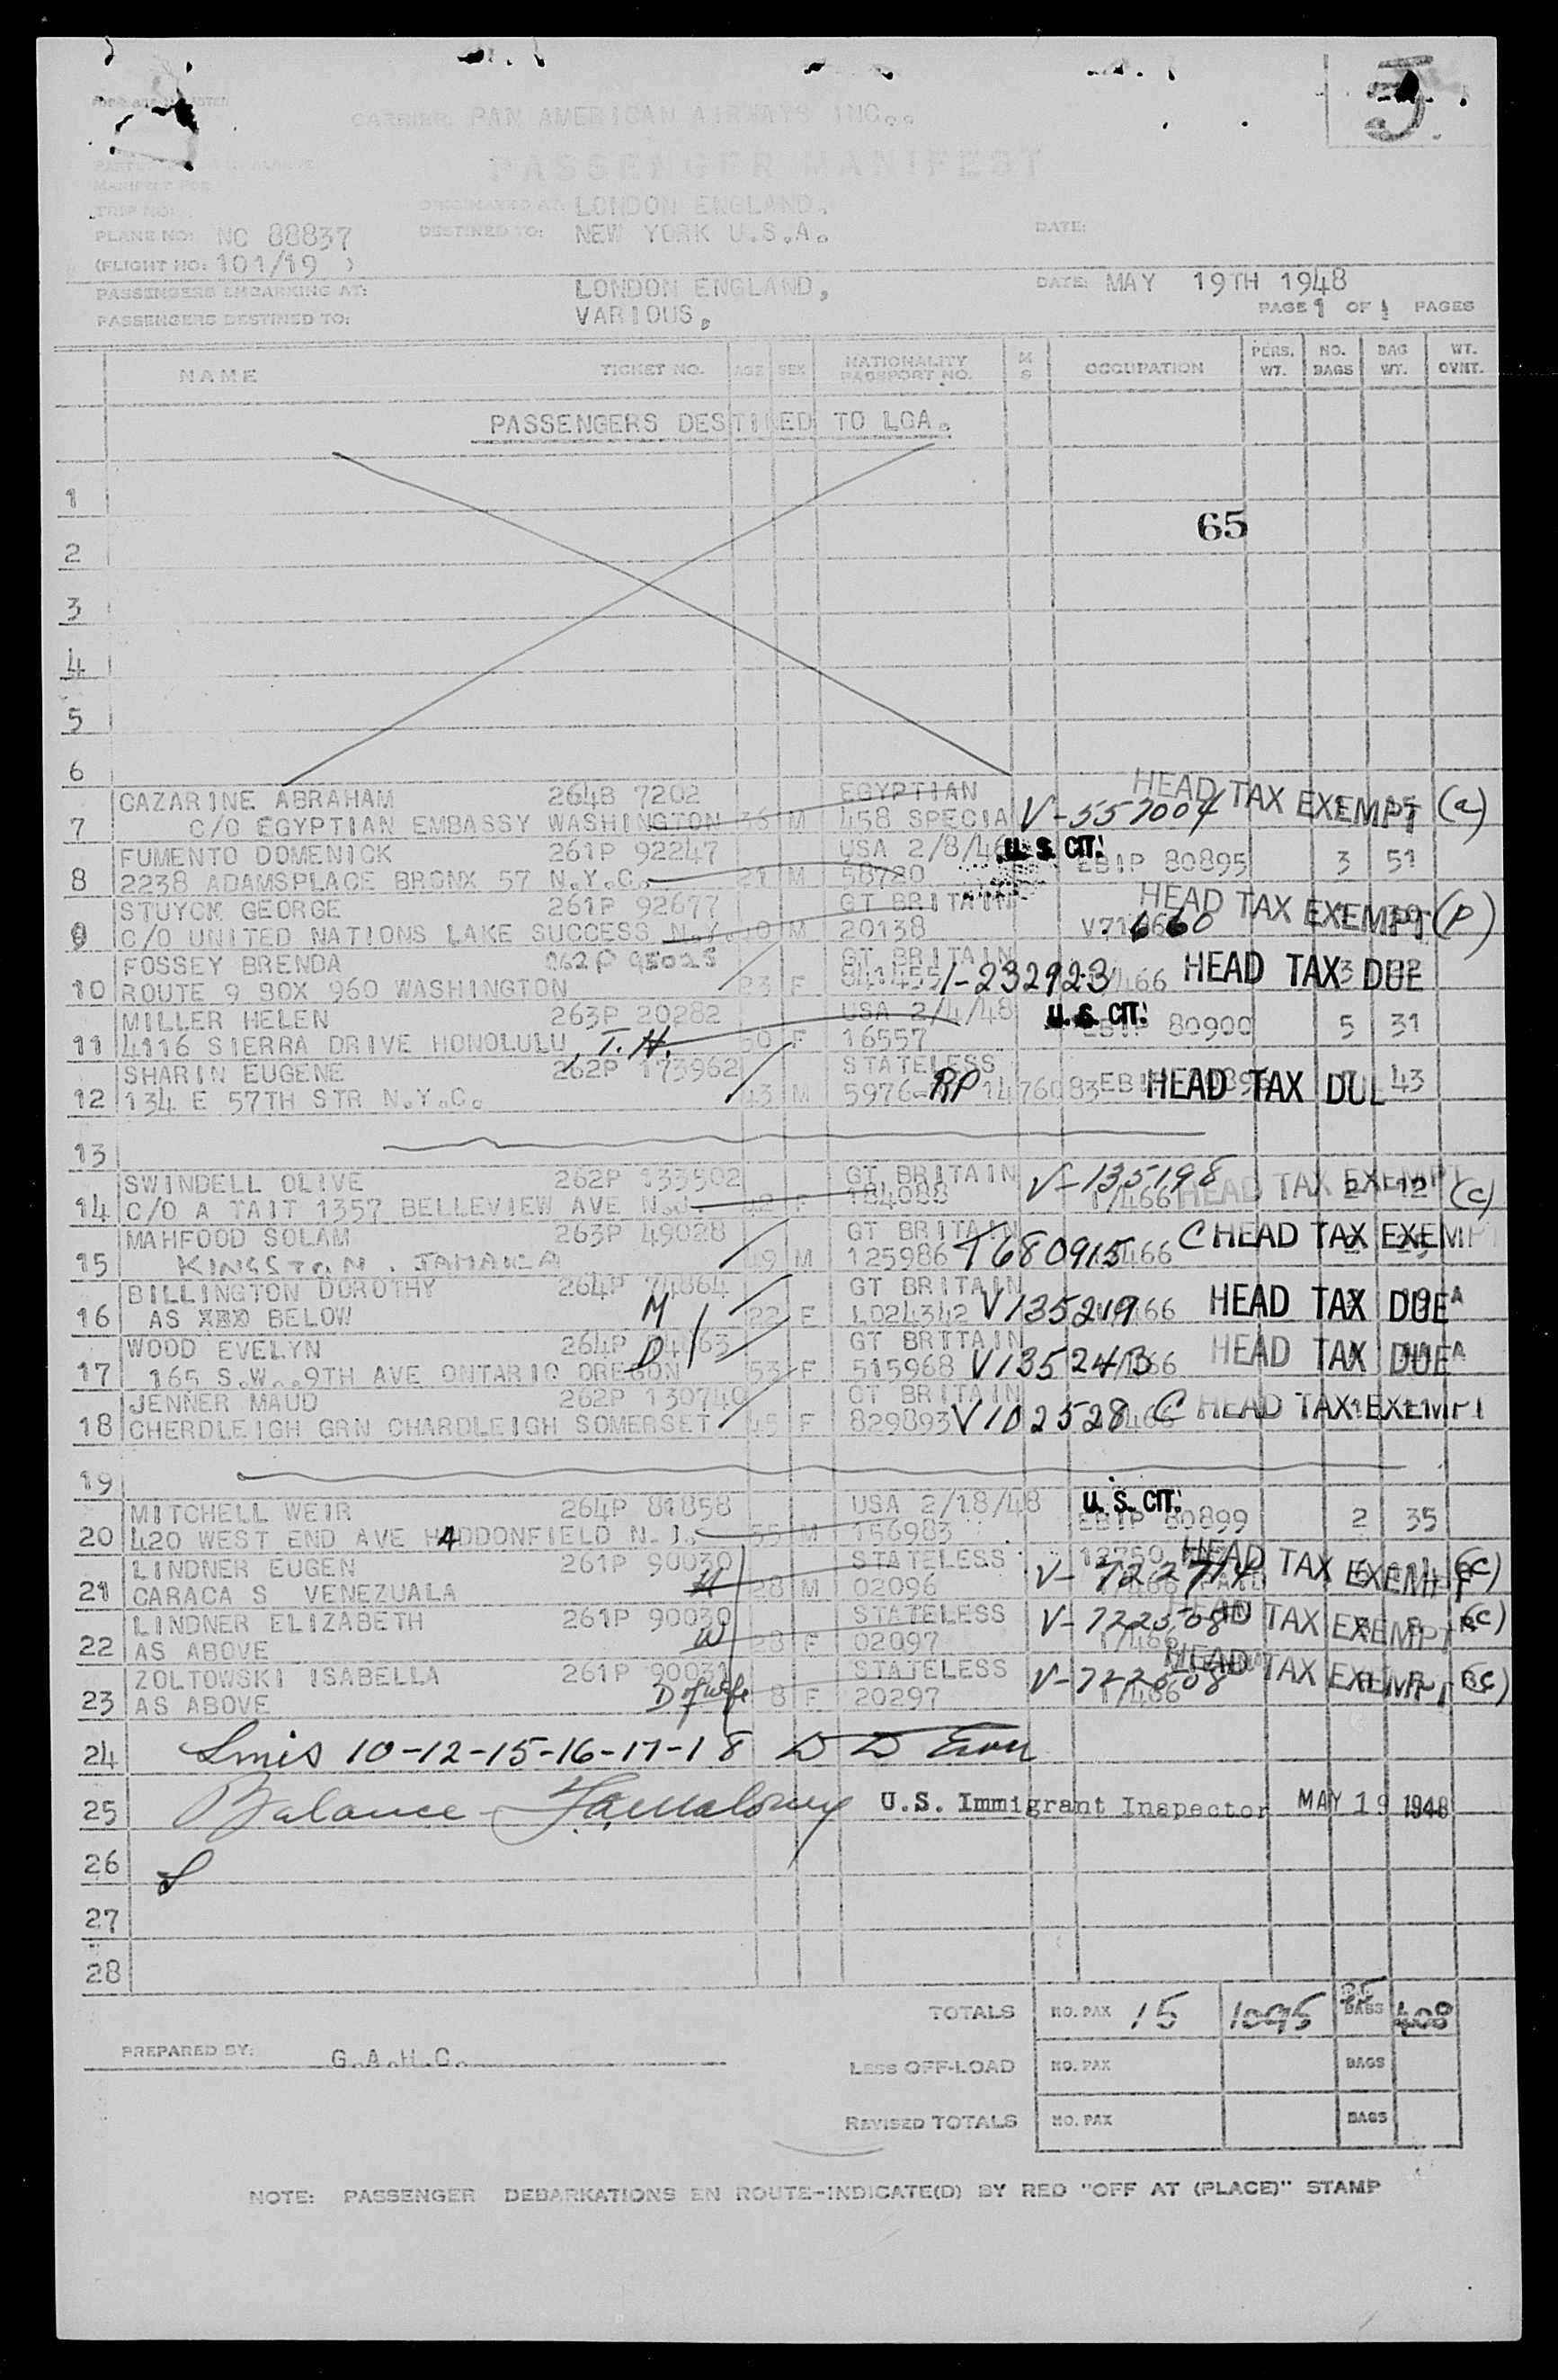 5.
CARRIER: PAN AMERICAN AIRWAYS INC..
PASSENGER MANIFEST
TRIP NO:
ORIGINATED AT: LONDON ENGLAND.
PLANE NO: NC 88837 DESTINED TO: NEW YORK U.S.A. DATE:
(FLIGHT NO: 101/19 )
PASSENGERS EMBARKING AT: LONDON ENGLAND, DATE: MAY 19TH 1948
PASSENGERS DESTINED TO: VARIOUS. PAGE 1 OF 1 PAGES
NAME TICKET NO. AGE SEX NATIONALITY PASSPORT NO. M S OCCUPATION PERS. WT. NO. BAGS BAG WT. WT. OVNT.
PASSENGERS DESTINED TO LGA.
1
65
2
3
4
5
6
CAZARINE ABRAHAM 264B 7202 EGYPTIAN HEAD TAX EXEMPT (a)
7 C/O EGYPTIAN EMBASSY WASHINGTON 36 M 458 SPECIA V-557004
FUMENTO DOMENICK 261P 92247 USA 2/8/46 U. S. CIT.
8 2238 ADAMSPLACE BRONX 57 N.Y.C. 21 M 58720 EBIP 80895 3 51
STUYCK GEORGE 261P 92677 GT BRITAIN HEAD TAX EXEMPT (P)
9 C/O UNITED NATIONS LAKE SUCCESS N.Y. M 20138
FOSSEY BRENDA 262P 95025 GT BRITAIN
10 ROUTE 9 BOX 960 WASHINGTON 23 F 841455 I-232923 HEAD TAX DUE
MILLER HELEN 263P 20282 USA 2/4/48 U. S. CIT.
11 4116 SIERRA DRIVE HONOLULU, T.H. 50 F 16557 EBIP 80900 5 31
SHARIN EUGENE 262P 173962 STATELESS
12 134 E 57TH STR N.Y.C. 43 M 5976 RP 1476083 HEAD TAX DUE 43
13
SWINDELL OLIVE 262P 133502 GT BRITAIN V-135198
14 C/O A TAIT 1357 BELLEVIEW AVE N.J. 42 F 184088 1/466 HEAD TAX EXEMPT 2 12 (c)
MAHFOOD SOLAM 263P 49028 GT BRITAIN
15 KINGSTON. JAMAICA 49 M 125986 T680915 C HEAD TAX EXEMPT
BILLINGTON DOROTHY 264P 74864 GT BRITAIN
16 AS BELOW M 22 F L024342 V135219 HEAD TAX DUE A
WOOD EVELYN 264P GT BRITAIN
17 165 S.W..9TH AVE ONTARIO OREGON D 53 F 515968 V135243 HEAD TAX DUE A
JENNER MAUD 262P 130740 GT BRITAIN
18 CHERDLEIGH GRN CHARDLEIGH SOMERSET 45 F 829893 V102528 C HEAD TAX EXEMPT
19
MITCHELL WEIR 264P 81858 USA 2/18/48 U. S. CIT.
20 420 WEST END AVE HADDONFIELD N.J. 55 M 156983 EBIP 80899 2 35
LINDNER EUGEN 261P 90030 STATELESS HEAD TAX EXEMPT (c)
21 CARACA S VENEZUALA H 28 M 02096 V-722714
LINDNER ELIZABETH 261P 90030 STATELESS V-722508 HEAD TAX EXEMPT (c)
22 AS ABOVE W 28 F 02097 1/466
ZOLTOWSKI ISABELLA 261P 90031 STATELESS HEAD TAX EXEMPT (c)
23 AS ABOVE D of wife 8 F 20297 V-722508 1/466
24 Lines 10-12-15-16-17-18
25 Balance U.S. Immigrant Inspector MAY 19 1948
26
27
28
TOTALS NO. PAX 15 1095 25 BAGS 408
PREPARED BY: G.A.H.C.
LESS OFF-LOAD NO. PAX BAGS
REVISED TOTALS NO. PAX BAGS
NOTE: PASSENGER DEBARKATIONS EN ROUTE-INDICATE(D) BY RED "OFF AT (PLACE)" STAMP